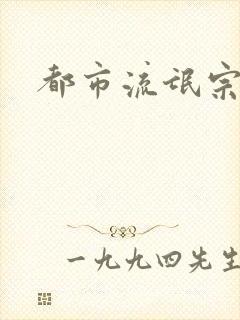 都市流氓宗
一九九四先生